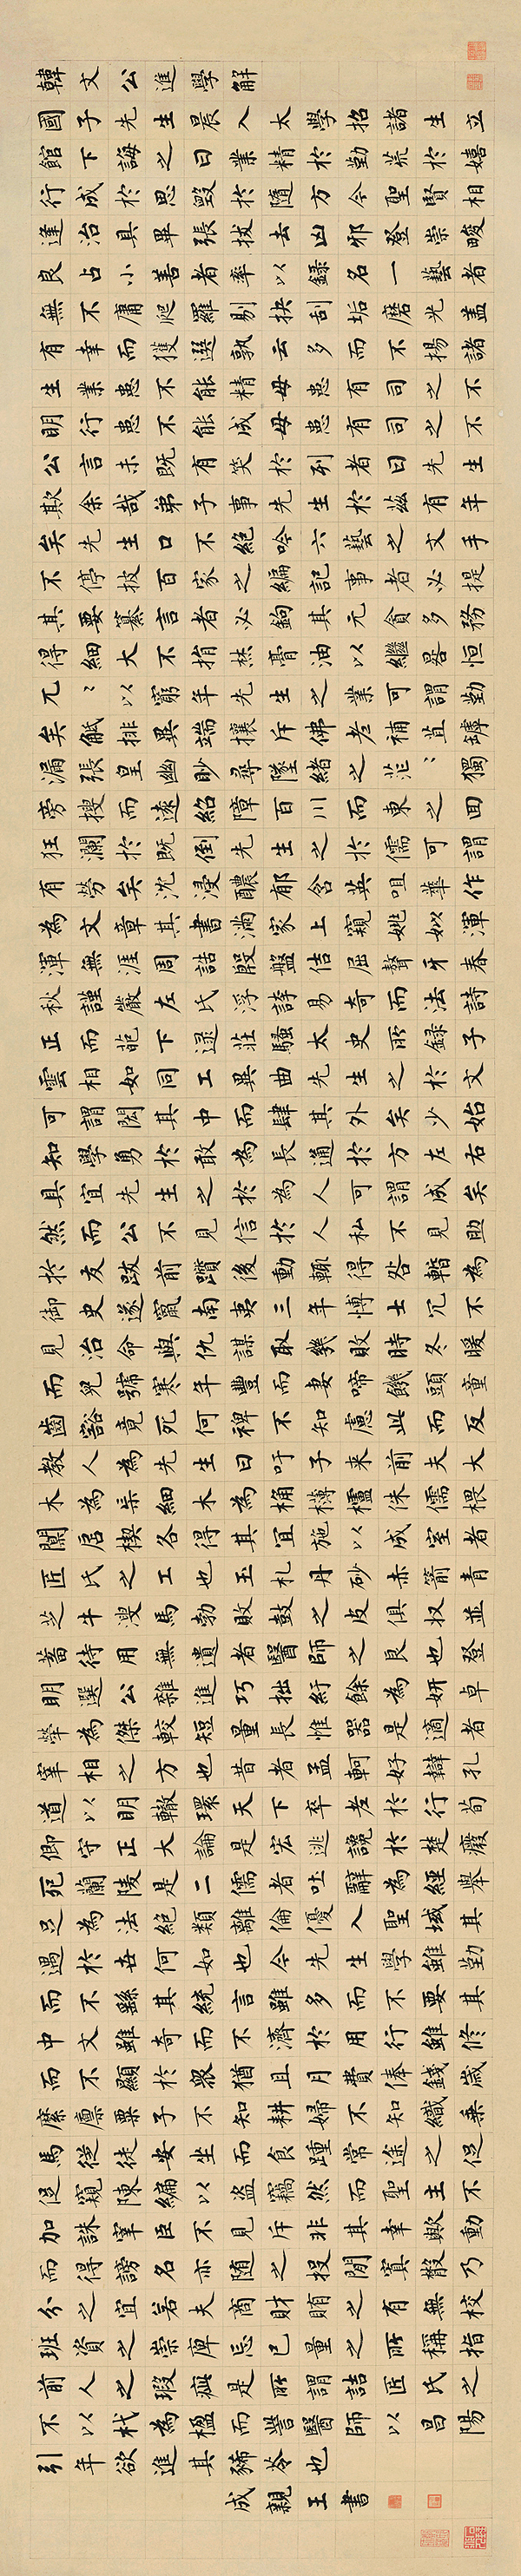 韓文公進學解
國子先生晨入太學招諸生立
館下誨之曰業精於勤荒於嬉
行成於思毀於隨方今聖賢相
逢治具畢張拔去凶邪登崇畯
良占小善者率以録名一藝者
無不庸爬羅剔抉刮垢磨光盖
有幸而獲選孰云多而不揚諸
生業患不能精毋患有司之不
明行患不能成毋患有司之不
公言未既有笑於列者曰先生
欺余哉弟子事先生於茲有年
矣先生口不絕吟六藝之文手
不停披百家之編記事者必提
其要纂言者必鉤其元貪多務
得細大不捐焚膏油以繼晷恒
兀〻以窮年先生之業可謂勤
矣觝排異端攘斥佛老補苴罅
漏張皇幽眇尋墜緒之茫〻獨
旁搜而遠紹障百川而東之回
狂瀾於既倒先生之於儒可謂
有勞矣沈浸醲郁含英咀華作
為文章其書滿家上窺姚姒渾
渾無涯周誥殷盤佶屈聱牙春
秋謹嚴左氏浮誇易奇而法詩
正而葩下逮莊騷太史所録子
雲相如同工異曲先生之於文
可謂閎其中而肆其外矣少始
知學勇於敢為長通於方左右
具宜先生之於為人可謂成矣
然而公不見信於人私不見助
於友跋前躓後動輒得咎暫為
御史遂竄南夷三年博士冗不
見治命與仇謀取敗幾時冬暖
而兒號寒年豐而妻啼饑頭童
齒豁竟死何裨不知慮此而反
教人為先生曰吁子来前夫大
木為杗細木為桷欂櫨侏儒椳
闑扂楔各得其宜施以成室者
匠氏之工也玉札丹砂赤箭青
芝牛溲馬勃敗鼓之皮俱收並
蓄待用無遺者醫師之良也登
明選公雜進巧拙紆餘為妍卓
犖為傑較短量長惟器是適者
宰相之方也昔者孟軻好辯孔
道以明轍環天下卒老於行荀
卿守正大論是宏逃讒於楚廢
死蘭陵是二儒者吐辭為經舉
足為法絕類離倫優入聖域其
遇於世何如也今先生學雖勤
而不繇其統言雖多而不要其
中文雖奇而不濟於用行雖修
而不顯於衆猶且月費俸錢歲
縻廪粟子不知耕婦不知織乘
馬從徒安坐而食踵常途之促
促窺陳編以盜竊然而聖主不
加誅宰臣不見斥非其幸歟動
而得謗名亦隨之投閒寘散乃
分之宜若夫商財賄之有無校
班資之崇庳忘己量之所稱指
前人之瑕疵是所謂詰匠氏之
不以杙為楹而訾醫師以昌陽
引年欲進其豨苓也
成親王書